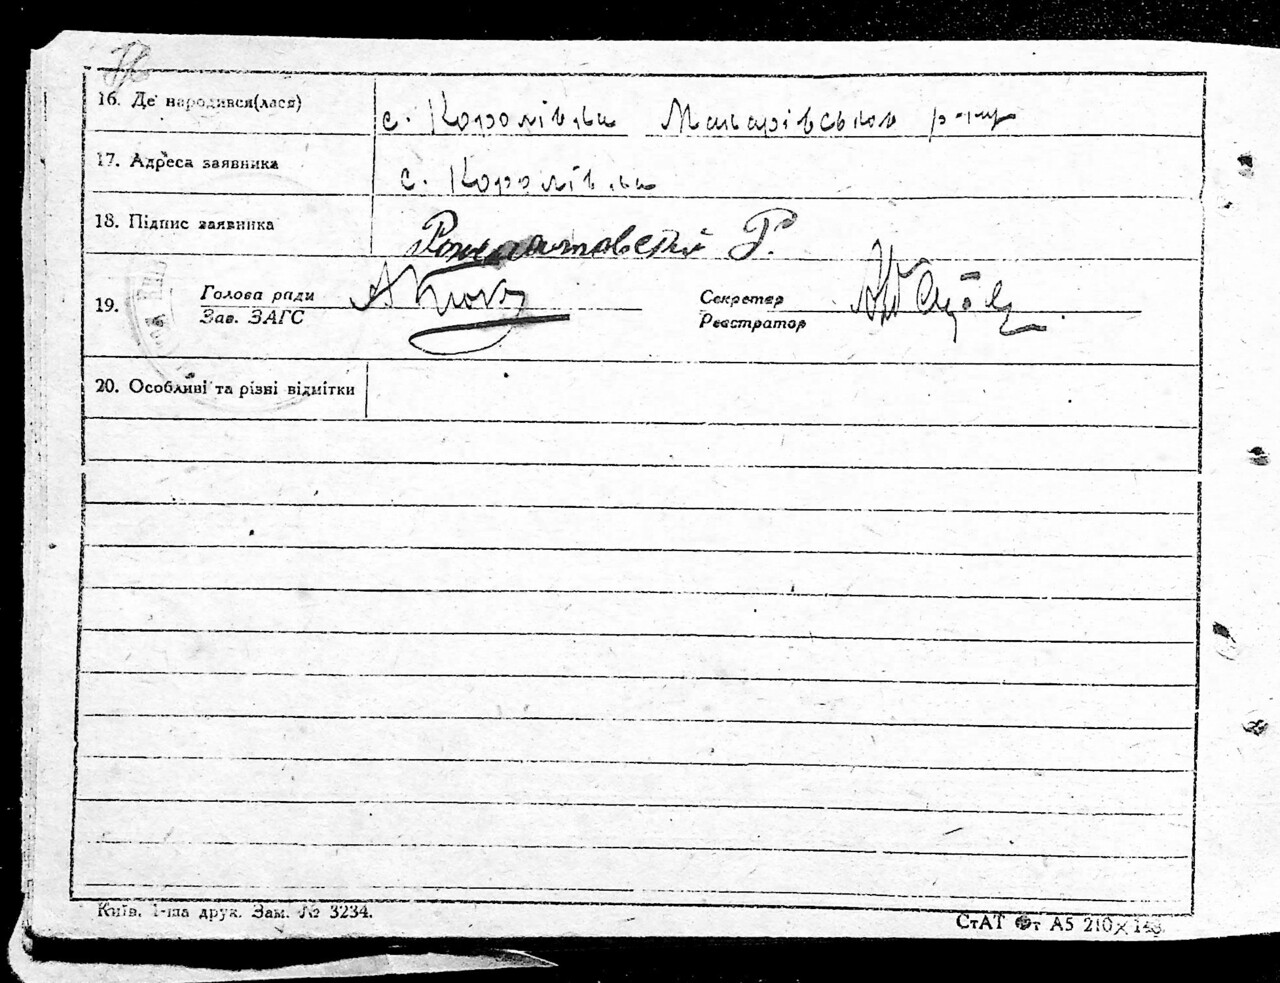 16. Де народився(лася) с. Королівка Макарівського р-ну
17. Адреса заявника с. Королівка
18. Підпис заявника Р.
19. Голова ради
Зав. ЗАГС
Секретер
Реєстратор
20. Особливі та різні відмітки
Київ. 1-ша друк. Зам. № 3234.
СтАТ Фт А5 210×148.